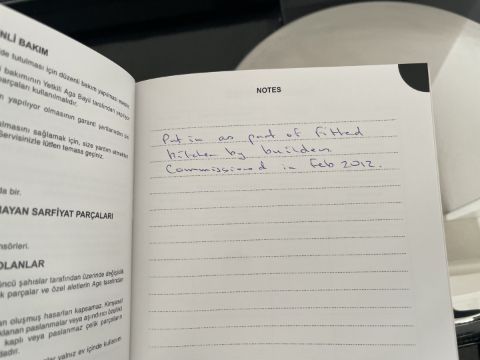 NLİ BAKIM
de tutulması için düzenli bakım yapılması
bakımının Yetkili Aga Bayii tarafından yapılıyor
parçaları kullanılmalıdır.
yapılıyor olmasının garanti şartlarından
olmasını sağlamak için, size yardım etmekten
Servisinizle lütfen temasa geçiniz.
da bir.
MAYAN SARFİYAT PARÇALARI
nsörleri.
OLANLAR
üncü şahıslar tarafından üzerinde değişiklik
k parçalar ve özel aletlerin Aga tarafından
an oluşmuş hasarları kapsamaz. Kimyasal
klanan paslanmalar veya aşındırıcı özellikli
kaplı veya paslanmaz çelik parçaların
dadır.
lar yalnız ev içinde kullanım
NOTES
Put in as part of fitted
kitchen by builder.
Commissioned in Feb 2012.